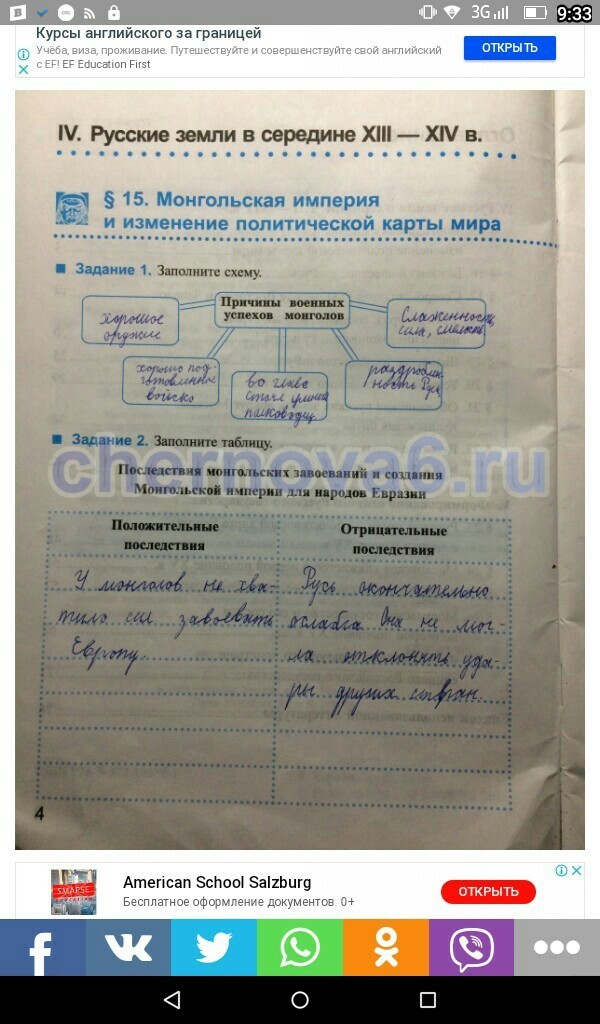 B
3G
9:33
Курсы английского за границей
Учёба, виза, проживание. Путешествуйте и совершенствуйте свой английский
с EF! EF Education First
ОТКРЫТЬ
IV. Русские земли в середине XIII — XIV в.
§ 15. Монгольская империя
и изменение политической карты мира
Задание 1. Заполните схему.
Причины военных
успехов монголов
хорошое
оружие
Слаженность,
сила, смелость
хорошо под-
готовленное
войско
во главе
стоял умный
полководец
раздроблен
ность Руси
Задание 2. Заполните таблицу.
chernova6.ru
Последствия монгольских завоеваний и создания
Монгольской империи для народов Евразии
Положительные
последствия
Отрицательные
последствия
У монголов не хва-
тило сил завоевать
Европу.
Русь окончательно
ослабла Она не мог-
ла отклонять уда-
ры других стран.
4
American School Salzburg
Бесплатное оформление документов. 0+
ОТКРЫТЬ